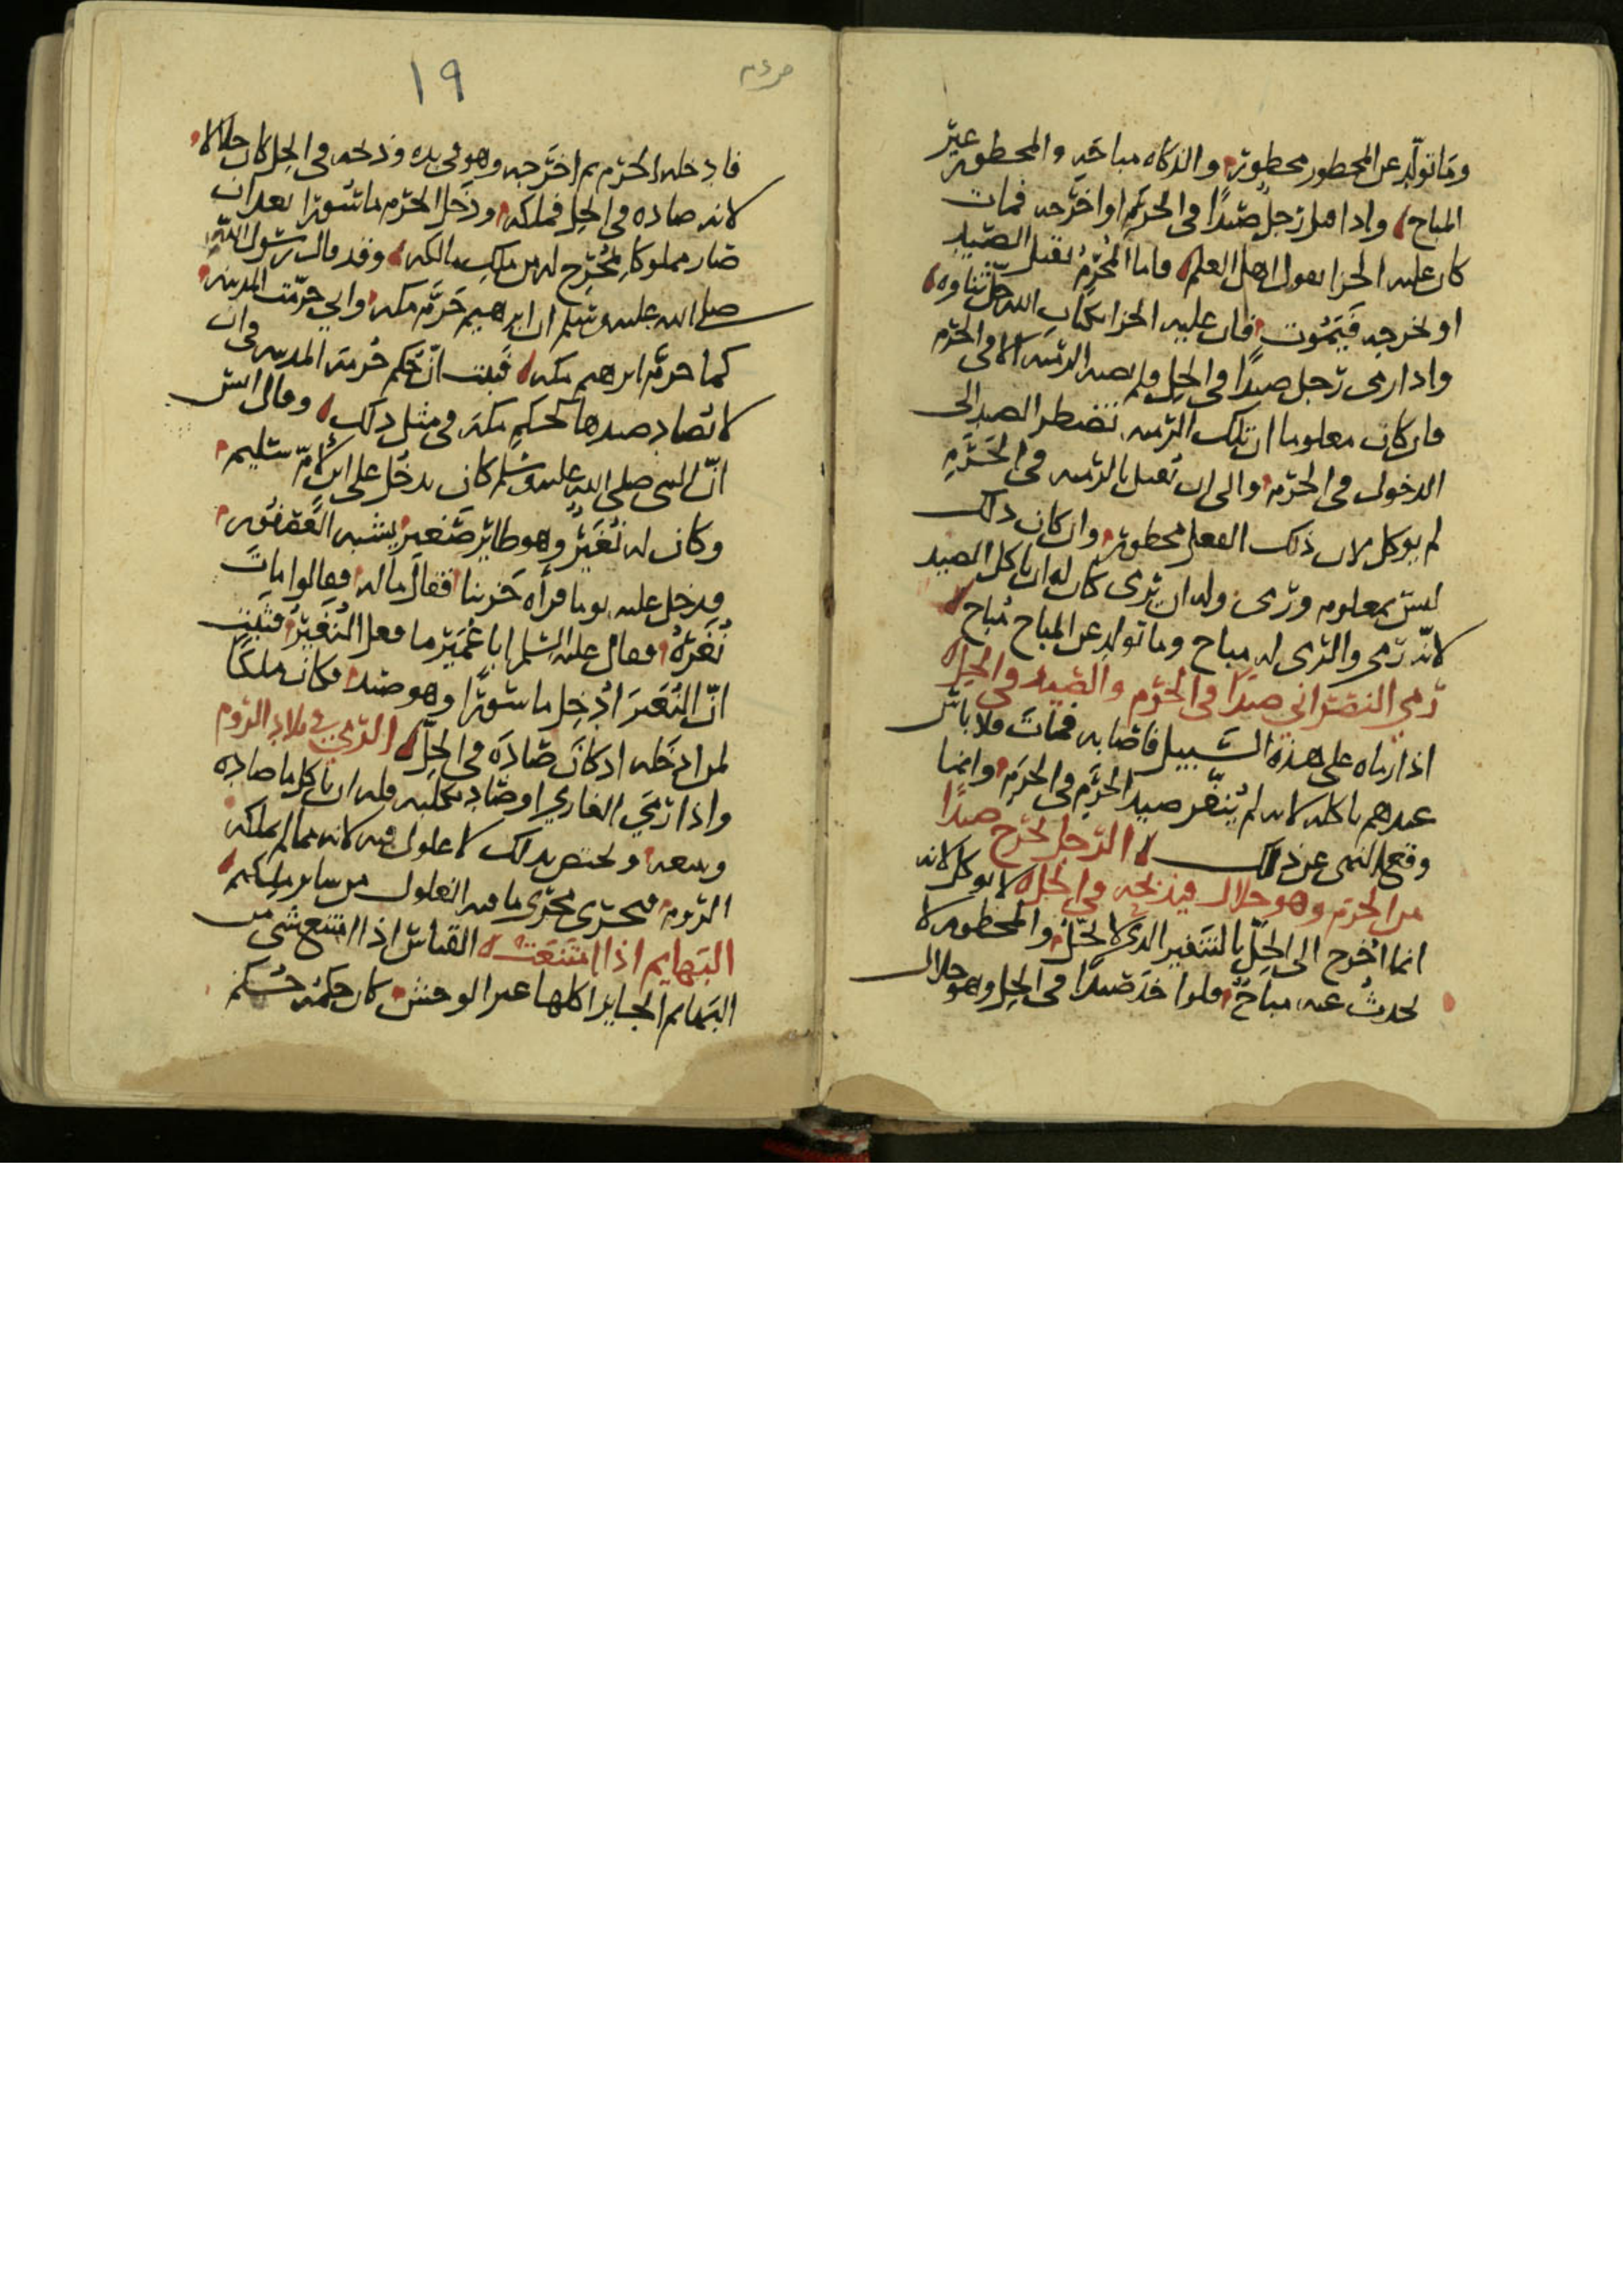 وما تولد عن المحظور محظور والذكاه مباحه والمحظور غير
المباح واذا قتل رجل صيدا في الحرم او اخرجه فمات
كان عليه الجزا بقول اهل العلم فاما المحرم يقتل الصيد
او يخرجه فيموت فان عليه الجزا بكتاب الله جل ثناوه
واذا رمى رجل صيدا في الحل فلم تصبه الرميه الا في الحرم
فان كان معلوما ان تلك الرميه تضطر الصيد الى
الدخول في الحرم والى ان يقتل بالرميه في الحرم
لم يوكل لان ذلك الفعل محظور وان كان ذلك
ليس بمعلوم ورمى وله ان يرمى كان له ان ياكل الصيد
لانه رمى والرمى له مباح وما تولد عن المباح مباح
رمي النصراني صيدا في الحرم والصيد في الحل
اذا رماه على هذه السبيل فاصابه فمات فلا باس
عندهم باكله لانه لم ينفر صيد الحرم في الحرم وانما
وقع النهى عن ذلك الرجل يخرج صيدا
من الحرم وهو حلال فيذبحه في الحل لا يوكل لانه
انما اخرج الى الحل بالتنفير الذي لا يحل والمحظور لا
يحدث عنه مباح فلو اخذ صيدا في الحل وهو حلال
١٩
فادخله الحرم ثم اخرجه وهو في يده وذبحه في الحل كان حلالا
لانه صاده في الحل فملكه ودخل الحرم ماسورا بعد ان
صار مملوكا لم يخرج له من ملك مالكه وقد قال رسول الله
صلى الله عليه وسلم ان ابراهيم حرم مكه واني حرمت المدينه
كما حرم ابراهيم مكه فثبت ان حكم حرمة المدينه في ان
لا تصاد صيدها كحكم مكه في مثل ذلك وقال انس
ان النبي صلى الله عليه وسلم كان يدخل على ابن لام سليم
وكان له نغير وهو طاير صغير يشبه العصفور
فدخل عليه يوما فرأه حزينا فقال ما له فقالوا مات
نغره فقال عليه السلم ابا عمير ما فعل النغير فثبت
ان النغير ادخل ماسورا وهو صيد فكان ملكا
لمن ادخله اذ كان صاده في الحل الرمي في بلاد الروم
واذا رمى الغازي او صاد بكلبه فله ان ياكل ما صاده
وبيعه ويختص بذلك لا غلول فيه لانه مما لم يملكه
الروم فيجرى مجرى ما فيه الغلول من ساير ملكهم
البهايم اذا امتنعت القياس اذا امتنع شي من
البهايم الجايز اكلها غير الوحش كان حكمه حكم